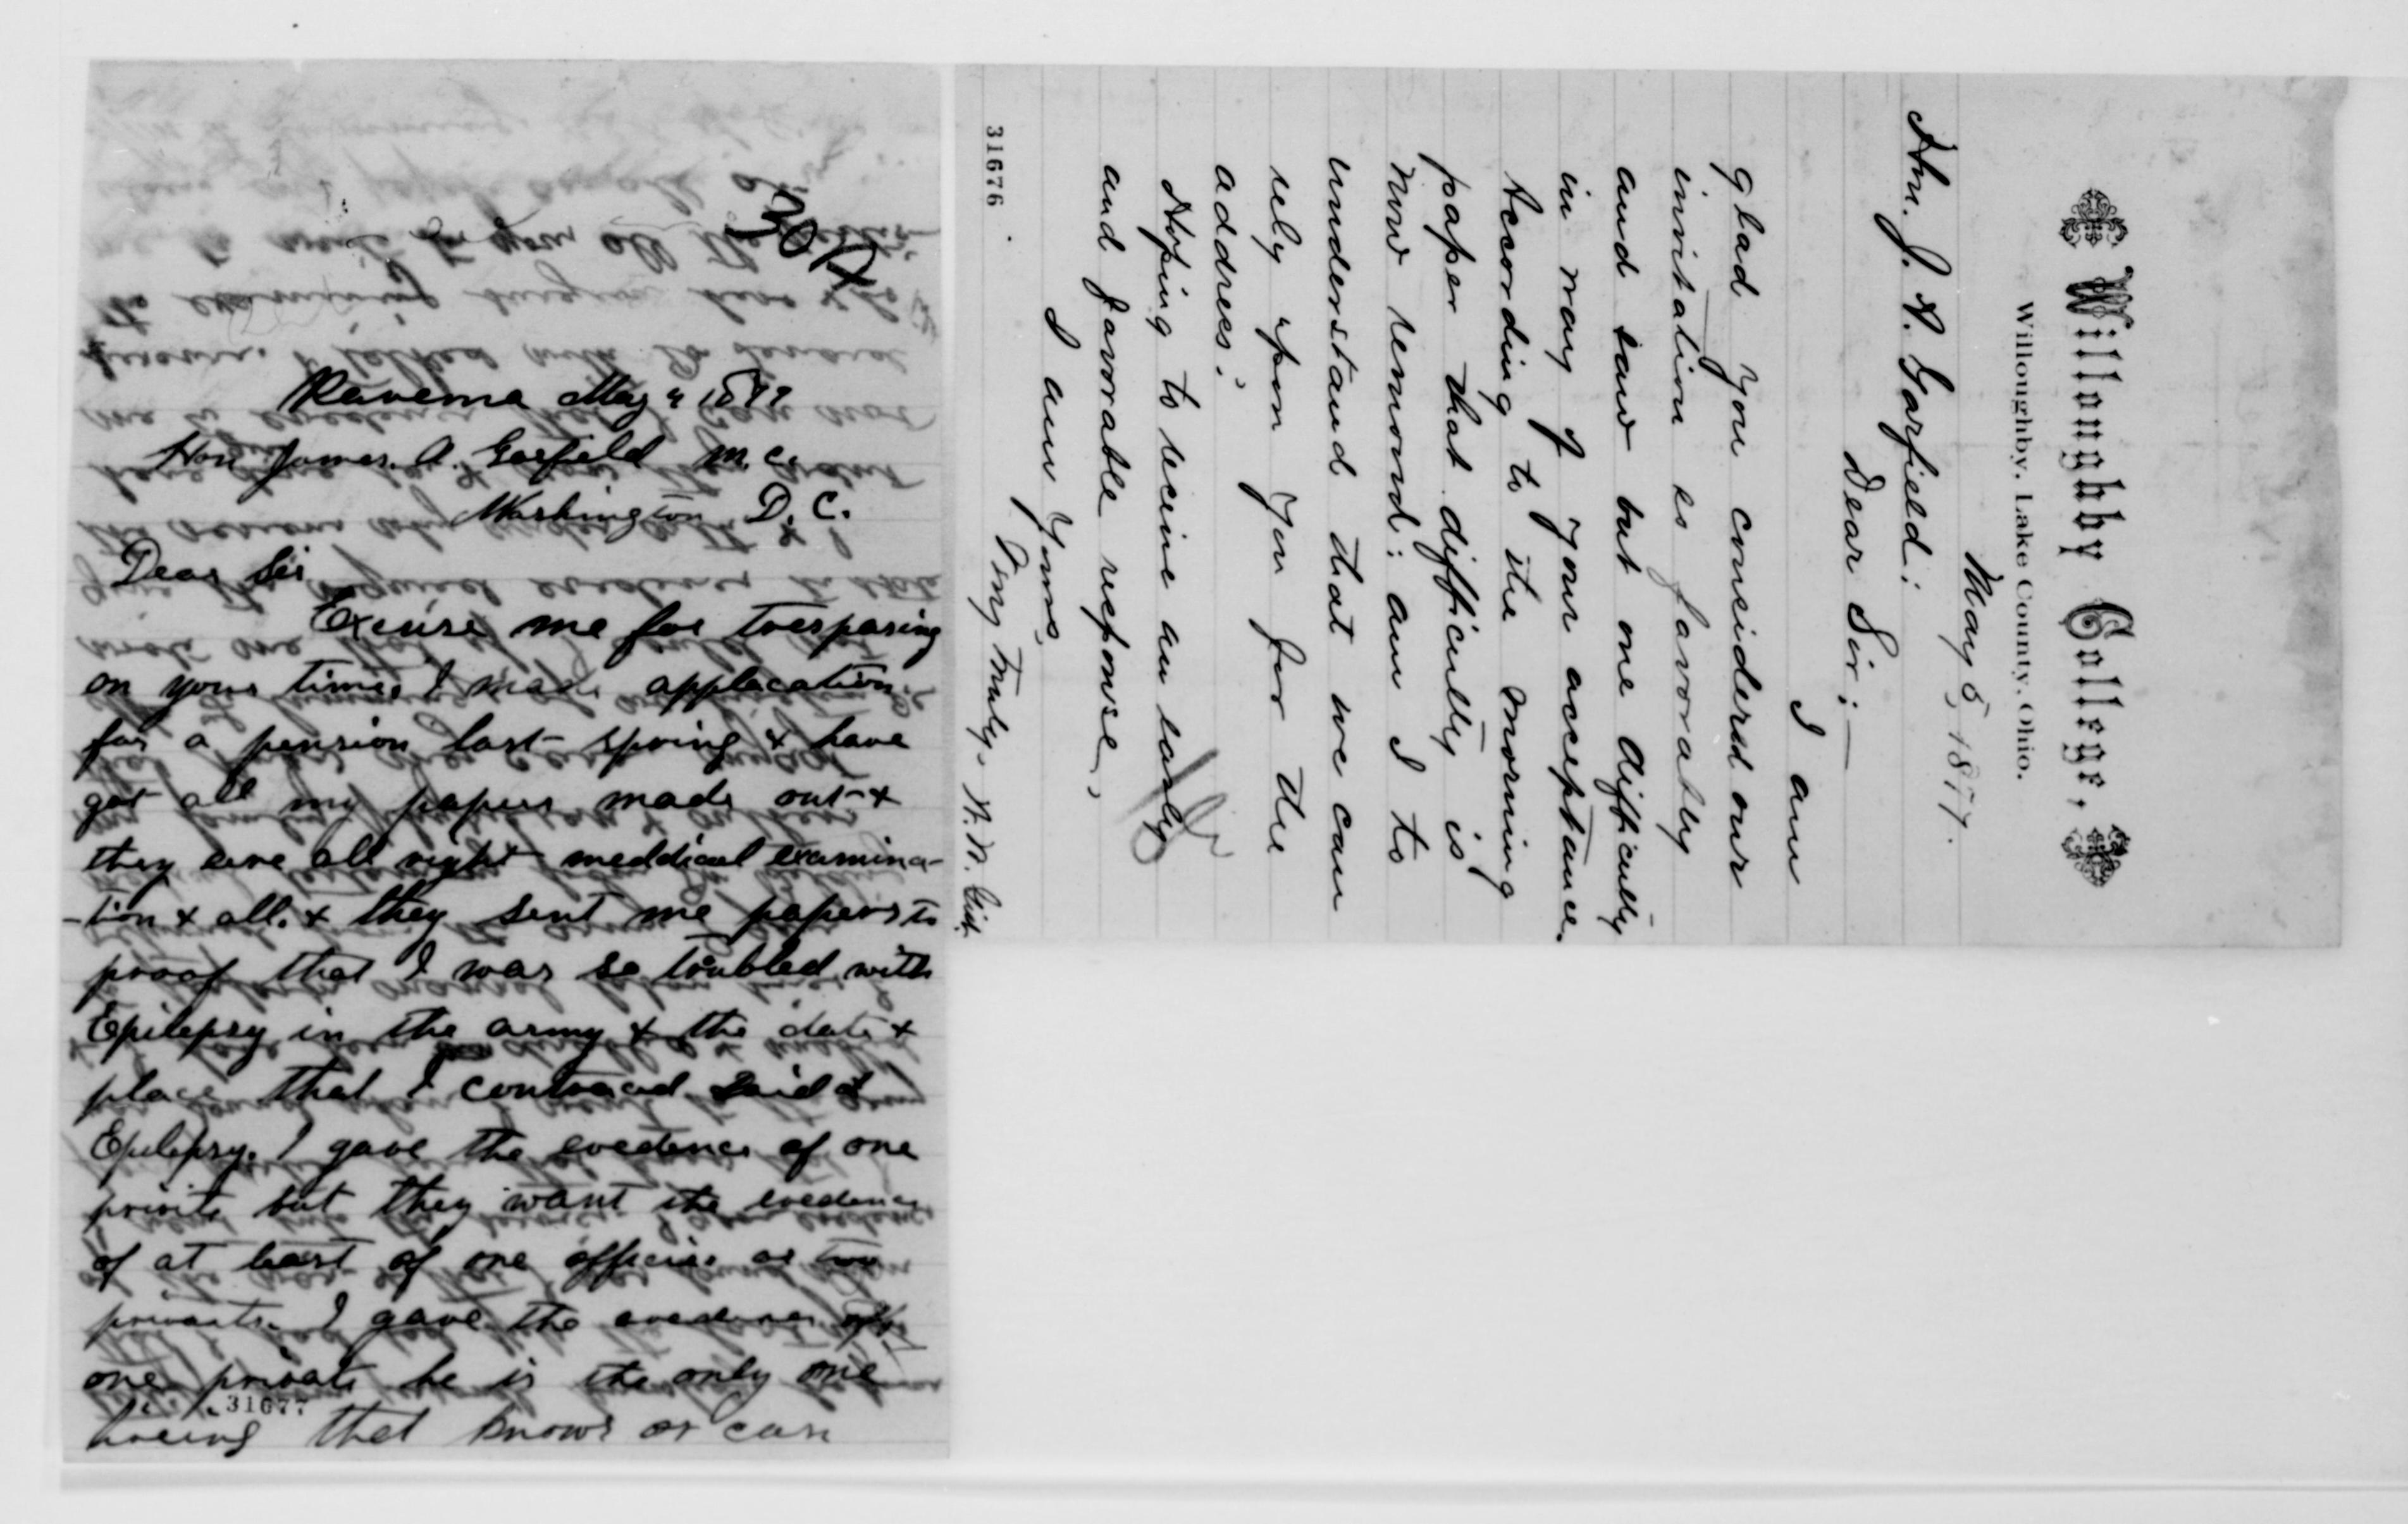 Ravenna May 4 1877
Hon James. A. Garfield M.C.
Washington D.C.
Dear Sir
Excuse me for tresparing
on your time. I made applacation
for a pension last spring & have
got all my papers made out &
they are all right meddical examina-
-tion & all. & they sent me papers to
proof that I was so toubled with
Epilepsy in the army & the date &
place that I contraced said
Epilepsy. I gave the evedence of one
privite but they want the evedence
of at least of one officier or two
privats. I gave the evedence of
one private he is the only one
liveing that knows or can
31677
Willoughby College,
Willoughby, Lake County, Ohio.
May 5, 1877.
Hon. J. A. Garfield:
Dear Sir:—
I am
glad you considered our
invitation so favorably
and saw but one difficulty
in way of your acceptance.
According to the morning
paper that difficulty is
now removed: am I to
understand that we can
rely upon you for the
address?
Hoping to receive an early
and favorable response,
I am Yours,
Very truly,
31676